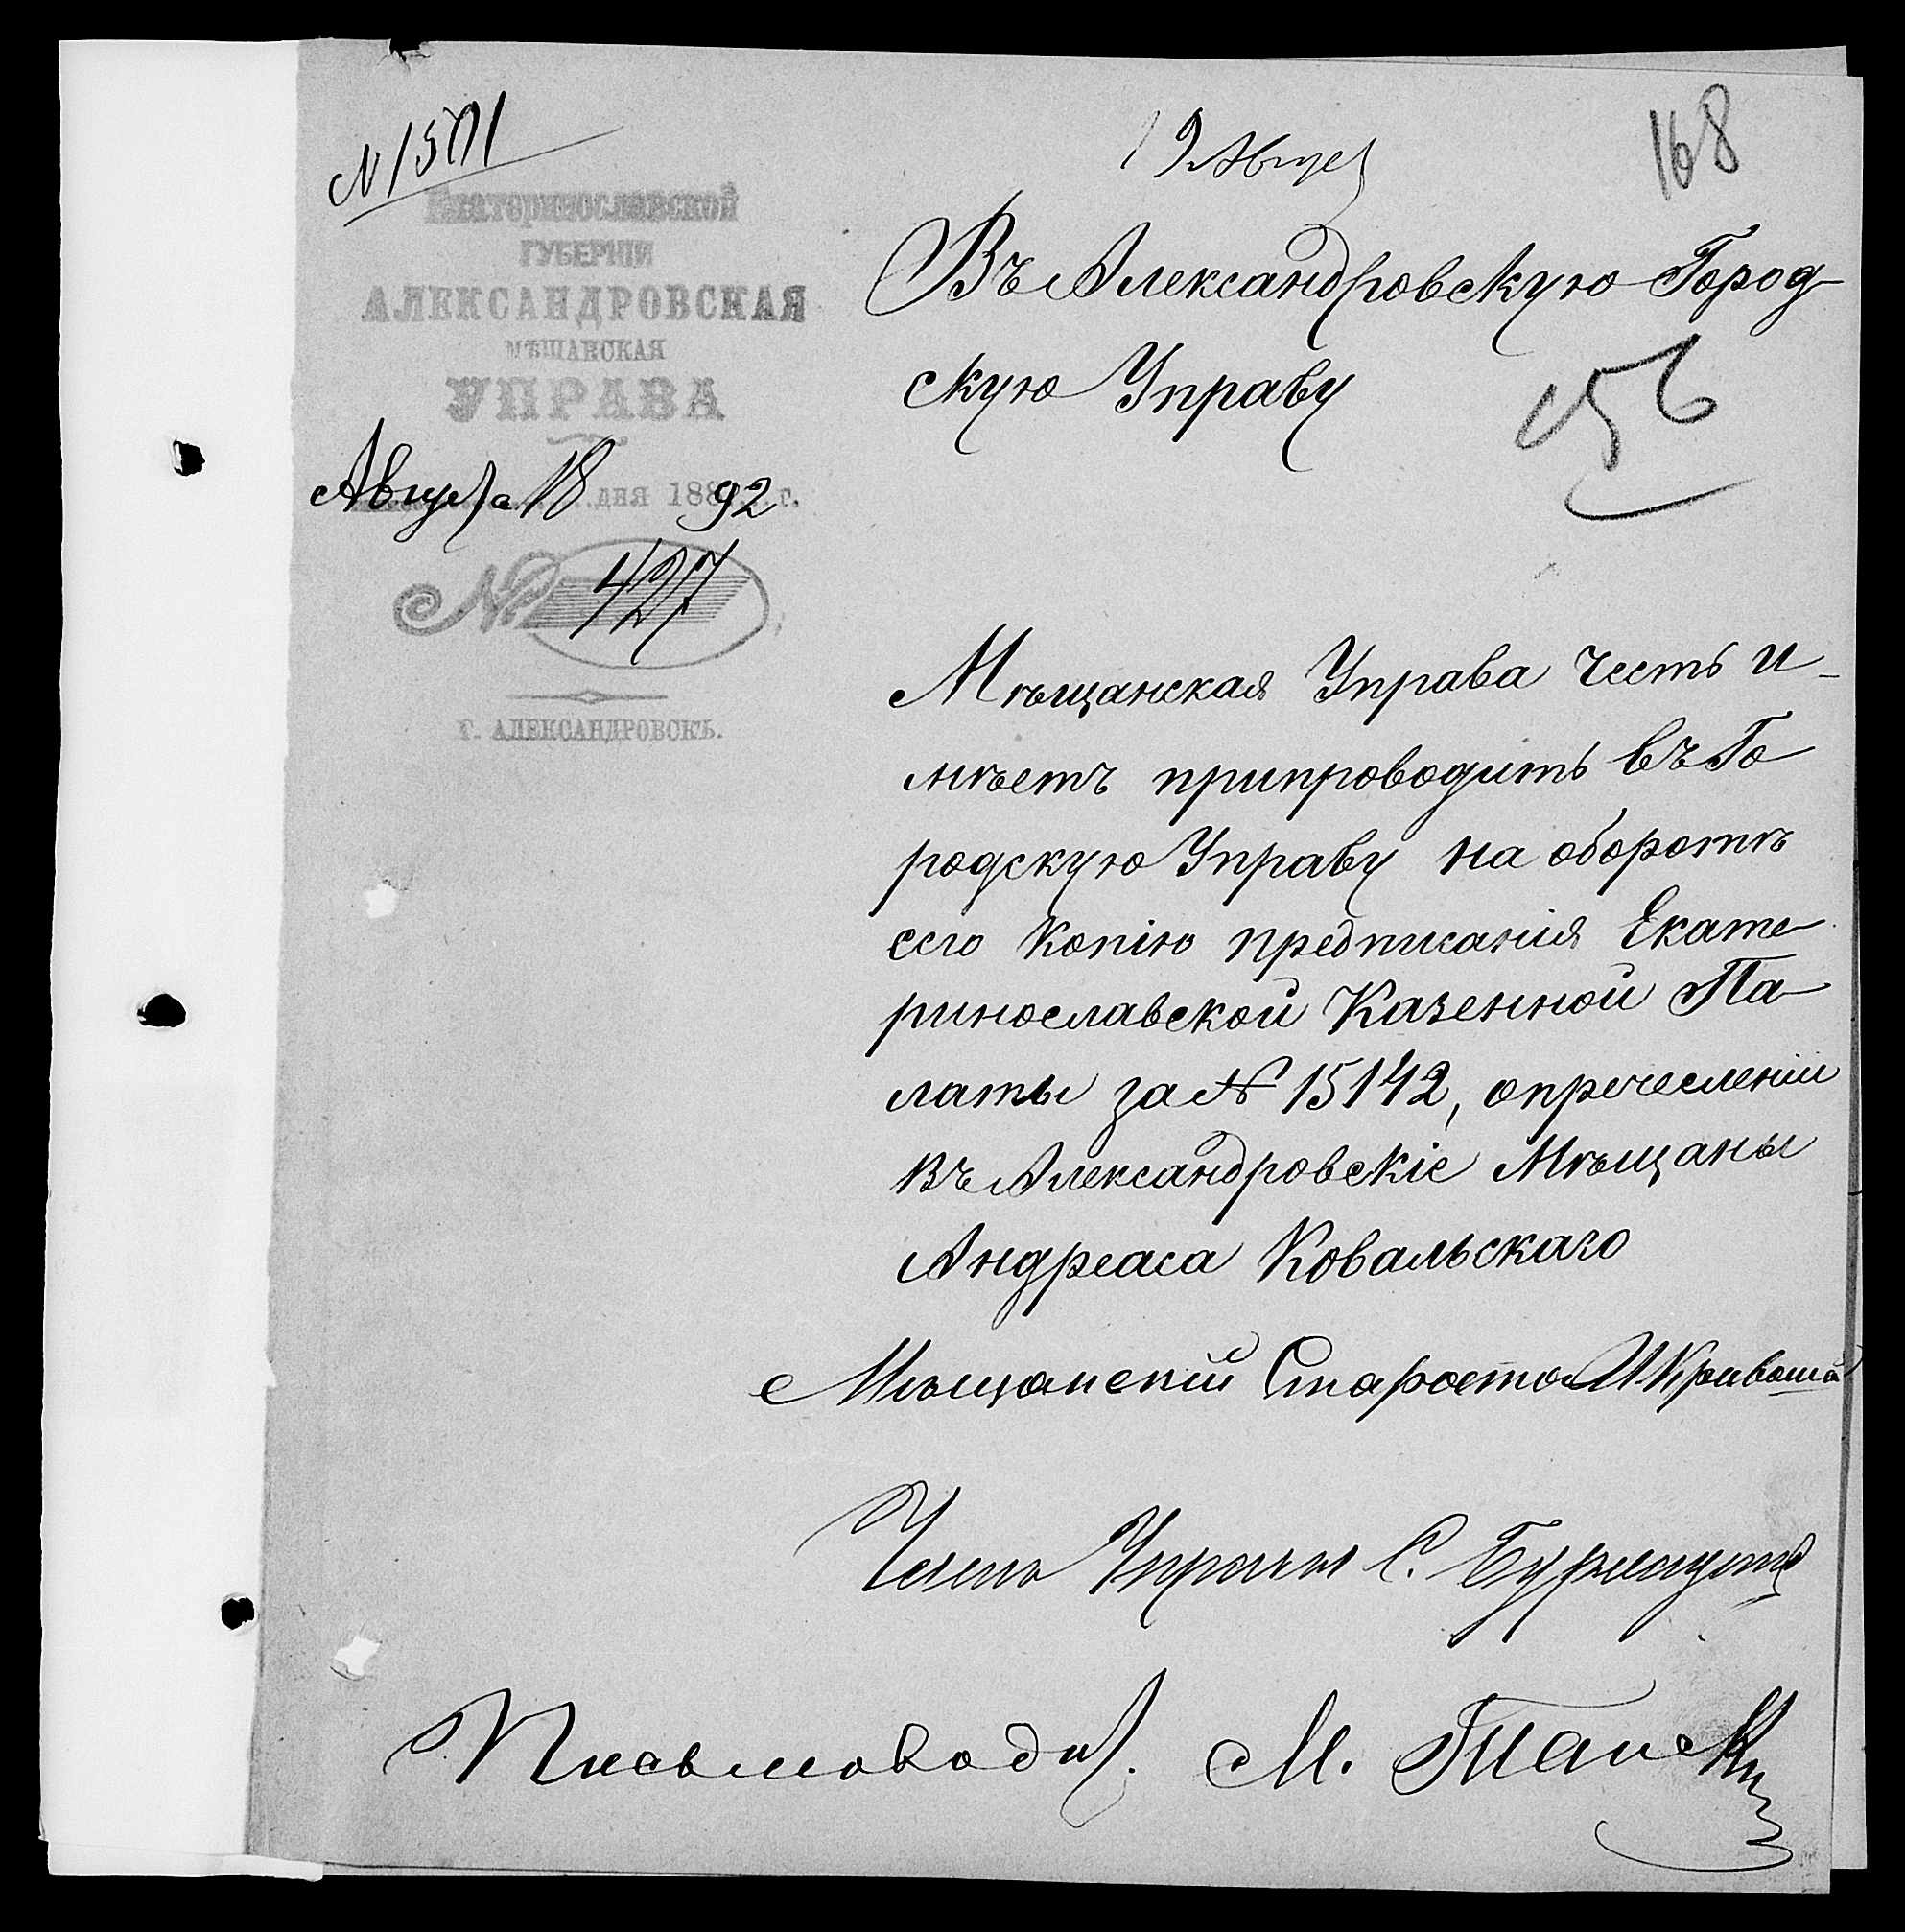 19 Август
168
Екатеринославской
ГУБЕРНІИ
АЛЕКСАНДРОВСКАЯ
МѢЩАНСКАЯ
УПРАВА
Августа 18 дня 188 92 г.
№ 427
г. АЛЕКСАНДРОВСКЪ.
Въ Александровскую Город
скую Управу
156
Мѣщанская Управа честь и-
мѣетъ припроводить въ Го
родскую Управу на оборотѣ
сего Копію предписанія Екате
ринославской Казенной Па
латы за № 15142, опречеслении
въ Александровскіе Мѣщаны
Андреаса Ковальскаго
Мѣщанский Староста
Членъ Управы С.
Письмоводит. М.